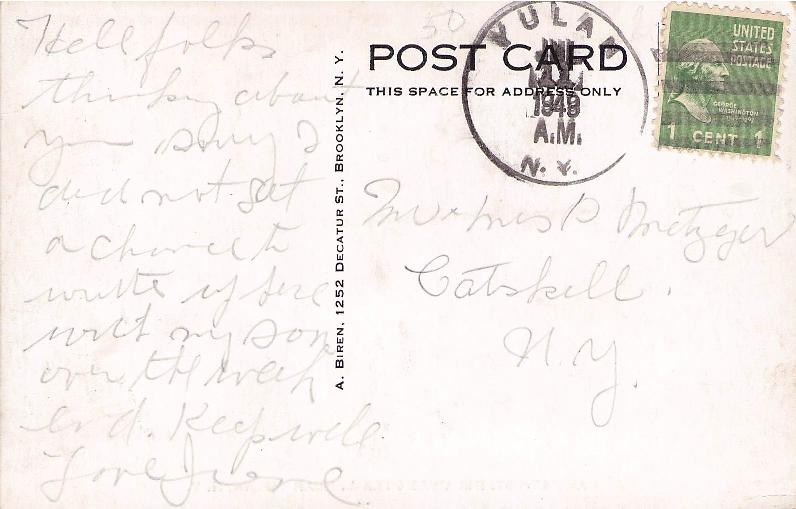 Hell folks
thinking about
you sorry I
did not get
a chance to
write up here
with my son
over the week
end. Keep well
Love Irene
A. BIREN, 1252 DECATUR ST., BROOKLYN, N. Y.
POST CARD
THIS SPACE FOR ADDRESS ONLY
YULAN
1949
A.M.
N. Y.
UNITED
STATES
POSTAGE
GEORGE
WASHINGTON
1 CENT 1
Mr & Mrs D Metzger
Catskill.
N.Y.
50